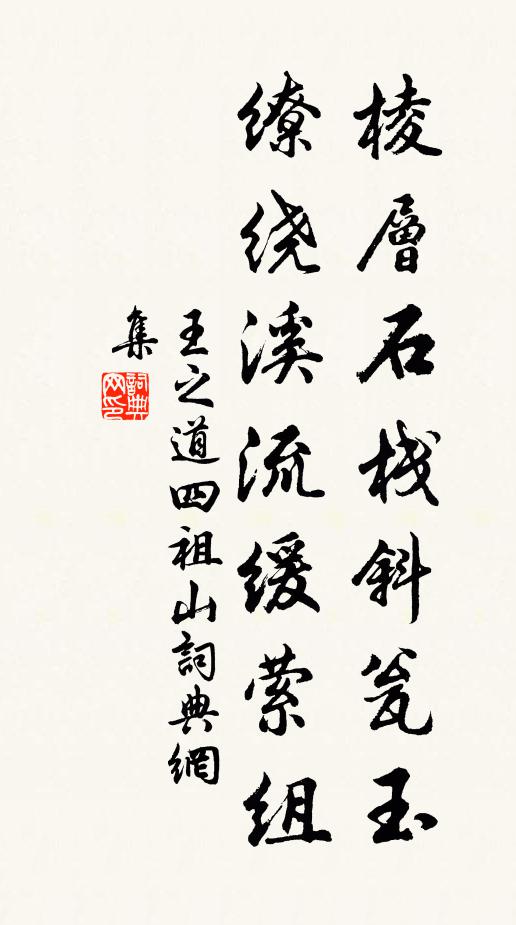 棱層石栈斜瓮玉
缭绕溪流缓萦组
王之道四祖山詞典網
集
詞典
网印